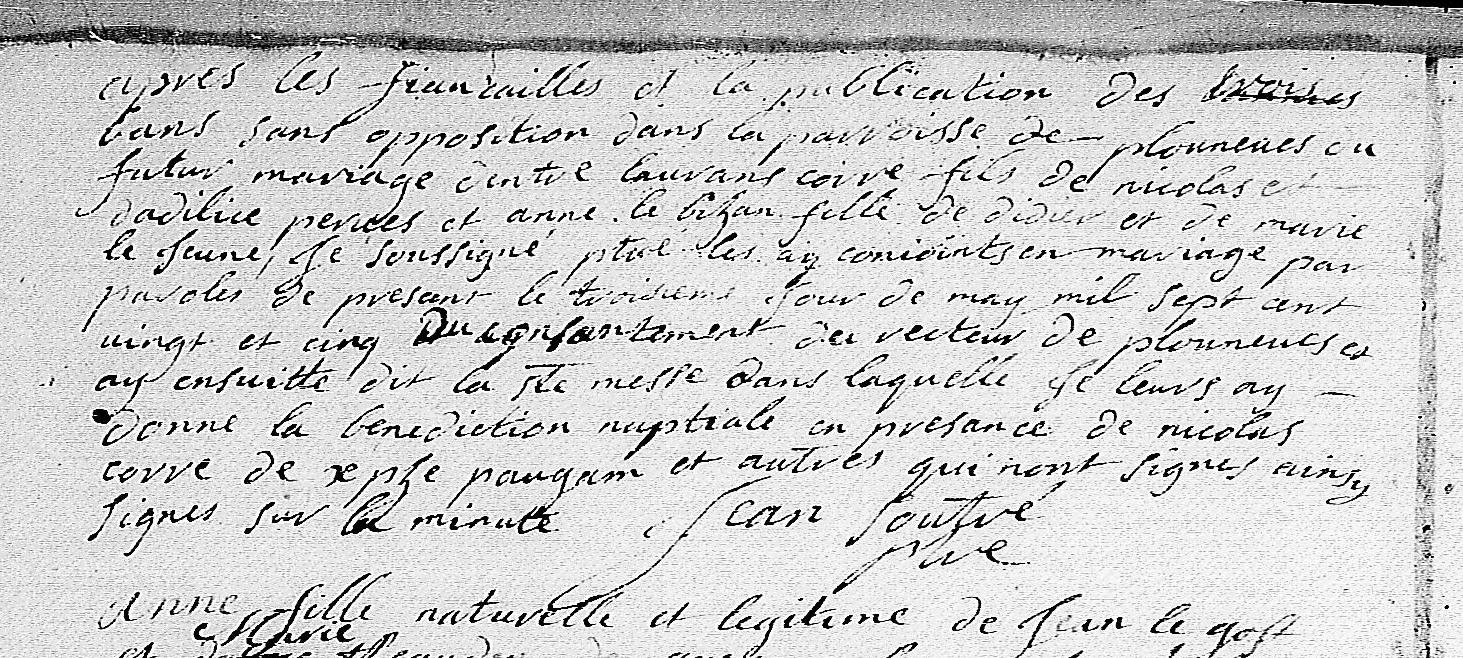 apres les fiancailles et la publication des trois
bans sans opposition dans la parroisse de plouneues du
futur mariage dentre laurans corre fils de nicolas et
dadilice perces et anne le bihan fille de didier et de marie
le Jeune, Je soussigné ptre les ay conioints en mariage par
paroles de presant le troisieme Jour de may mil sept cent
uingt et cinq du consantement du recteur de plouneues et
ay ensuitte dit la ste messe dans laquelle Je leurs ay
donne la benediction nuptiale en presance de nicolas
corre de xphe paugam et autres qui nont signes ainsy
signes sur la minute Jean
ptre
anne fille naturelle et legitime de Jean le goff
Marie